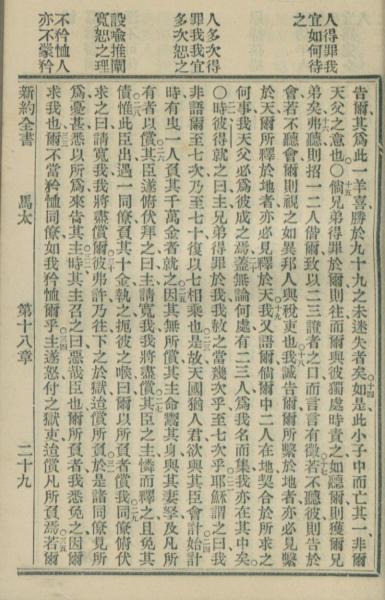 人得罪我
宜如何待
之
人多次得
罪我我宜
多次恕之
設喻推闡
寬恕之理
不矜恤人
亦不蒙矜
告爾其爲此一羊喜勝於九十九之未迷失者矣如是此小子中而亡其一非爾
天父之意也○倘兄弟得罪於爾則往而爾與彼獨處時責之如聽爾則獲爾兄
弟矣弗聽則招一二人偕爾致以二三證者之口而言言有徵若不聽彼則告於
會若不聽會爾則視之如異邦人與稅吏也我誠告爾爾所繫於地者亦必見繫
於天爾所釋於地者亦必見釋於天我又語爾倘爾中二人在地契合於所求之
何事我天父必爲彼成之焉蓋無論何處有二三人爲我名而集我亦在其中矣
○時彼得就之曰主兄弟得罪於我我赦之當幾次乎至七次乎耶穌謂之曰我
非語爾至七次乃至七十復以七相乘也是故天國猶人君欲與其臣會計始計
時有曳一人負其千萬金者就之因其無所償其主命鬻其身與其妻孥及凡所
有者以償其臣遂俯伏拜之曰主請寬我我將盡償其臣之主憐而釋之且免其
債惟此臣出遇一同僚負其十金執之扼彼之喉曰爾以所負者償我同僚俯伏
求之曰請寬我我將盡償爾彼弗許乃往下之於獄迨償所負於是諸同僚見所
爲憂甚悉以所爲來告其主時其主召之曰惡哉臣也爾所負者我悉免之因爾
求我也爾不當矜恤同僚如我矜恤爾乎主遂怒付之獄吏迨償凡所負焉若爾
新約全書 馬太 第十八章 二十九